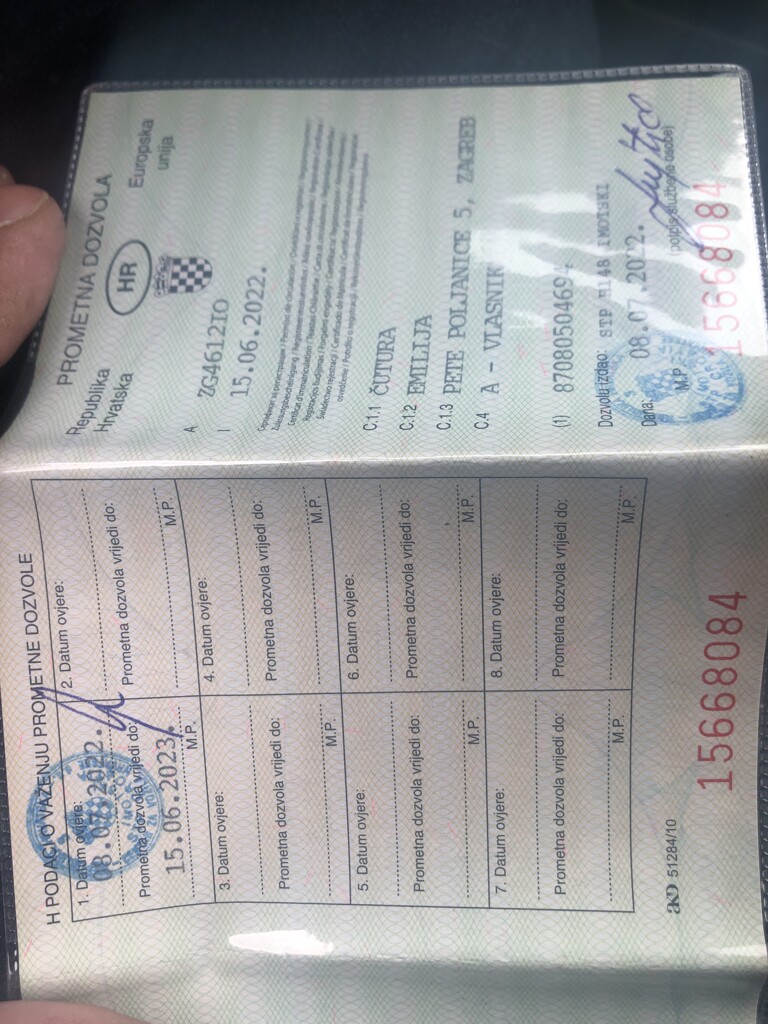 PROMETNA DOZVOLA
Republika
Hrvatska
HR
Europska
unija
A ZG4612IO
I 15.06.2022.
C.1.1 ČUTURA
C.1.2 EMILIJA
C.1.3 PETE POLJANICE 5, ZAGREB
C.4 A - VLASNIK
(1) 87080504694
Dozvolu izdao: STP IMOTSKI
Dana: 08.07.2022.
M.P. (potpis službene osobe)
15668084
H PODACI O VAŽENJU PROMETNE DOZVOLE
1. Datum ovjere:
08.07.2022.
Prometna dozvola vrijedi do:
15.06.2023.
M.P.
2. Datum ovjere:
Prometna dozvola vrijedi do:
M.P.
3. Datum ovjere:
Prometna dozvola vrijedi do:
M.P.
4. Datum ovjere:
Prometna dozvola vrijedi do:
M.P.
5. Datum ovjere:
Prometna dozvola vrijedi do:
M.P.
6. Datum ovjere:
Prometna dozvola vrijedi do:
M.P.
7. Datum ovjere:
Prometna dozvola vrijedi do:
M.P.
8. Datum ovjere:
Prometna dozvola vrijedi do:
M.P.
51284/10
15668084